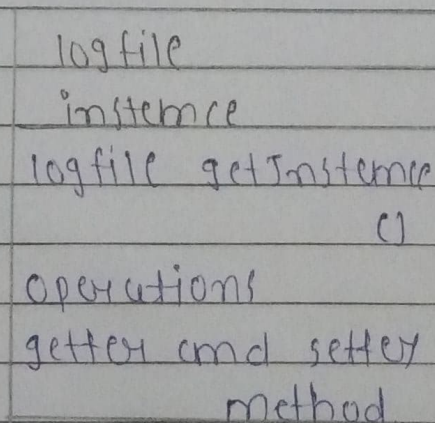 logfile
instance
logfile getInstance
()
operations
getter and setter
method